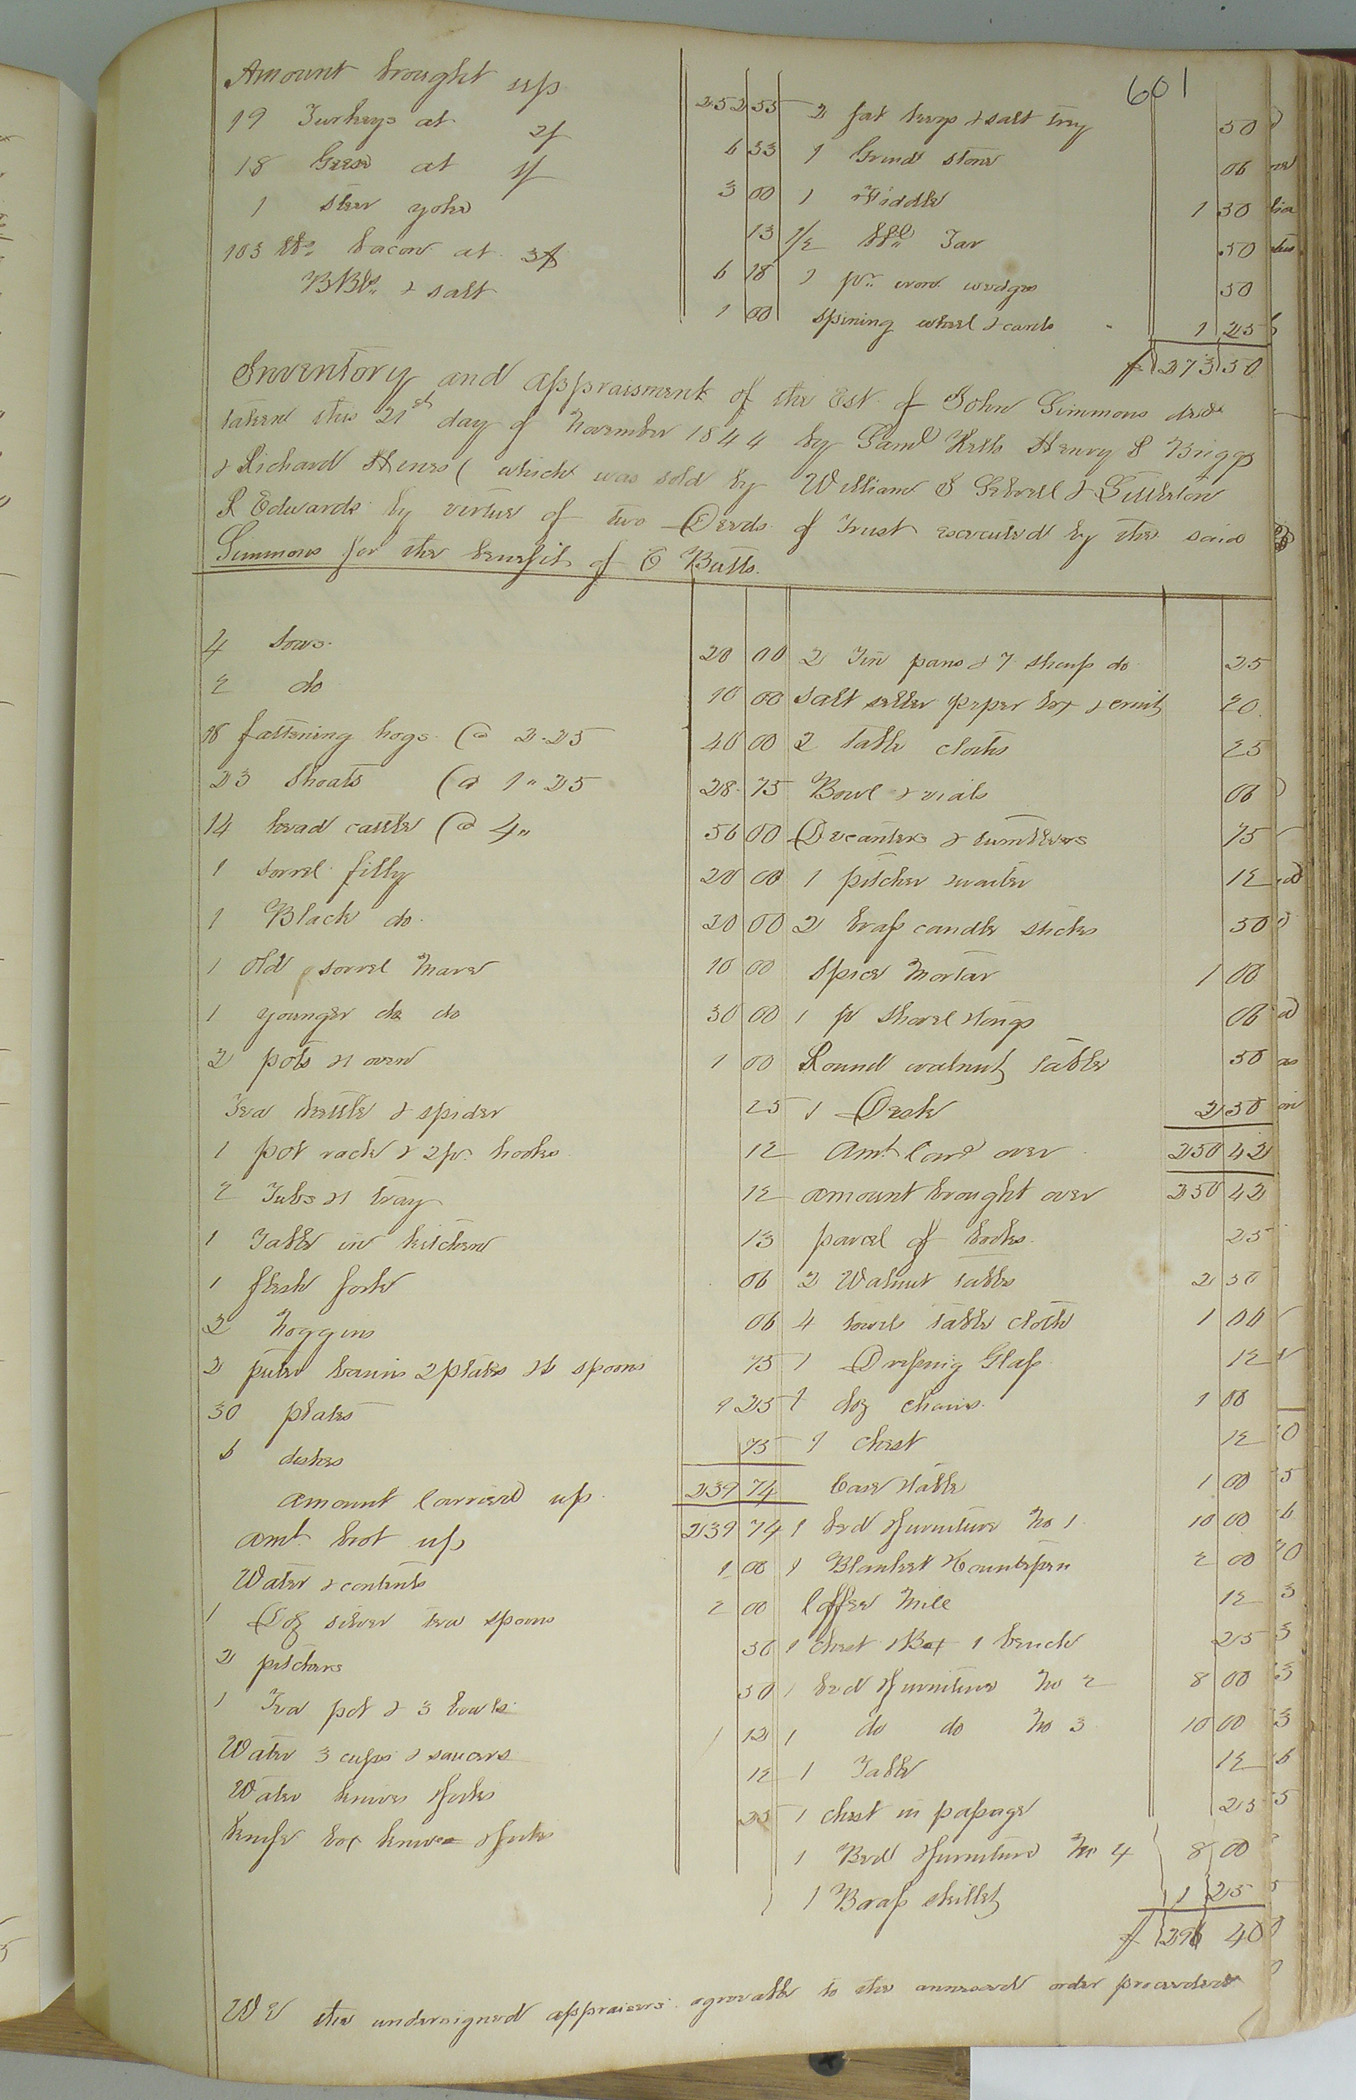 601
Amount brought up 252 55
19 Turkeys at 2/ 6 33
18 Geese at 1/ 3 00
1 steer yoke 13
103 lbs. bacon at 3f 6 18
BBls. & salt 1 00
2 fat & salt tray 50
1 Grind stone 06
1 Riddle 1 50
1/2 bbl. Tar 50
2 pr. iron wedges 50
spining wheel & cards 1 25
$ 273 50
Inventory and appraisment of the Est. of John Simmons decd
taken this 21st day of November 1844 by Saml Kello Henry B Briggs
& Richard Hines (which was sold by William S Sebrell & Littleton
R Edwards by virtue of two Deeds of Trust executed by the said
Simmons for the benefit of C Batts.
4 sows 20 00
2 do 10 00
18 fattening hogs @ 2.25 40 00
23 shoats @ 1"25 28 75
14 head cattle @ 4" 56 00
1 sorrel filly 20 00
1 Black do. 20 00
1 old sorrel mare 10 00
1 younger do do 30 00
2 pots & 1 oven 1 00
Tea kettle & spider 25
1 pot rack & 2 pr. hooks 12
2 Tubs & 1 tray 12
1 Table in kitchen 13
1 flesh fork 06
2 noggins 06
2 puter basins 2 plates & 6 spoons 75
30 plates 1 25
6 dishes 75
amount Carried up 239 74
amt. brot up 239 74
Water & contents 1 00
1 Doz silver tea spoons 2 00
2 pitchers 50
1 Tea pot & 3 bowls 50
Water 3 cups & saucers 1 12
Water knives & forks 12
knife box knives & forks 25
2 Tin pans & 7 sheep do 25
salt seller peper box & cruit 20
2 table cloths 25
Bowl & vials 06
Decanters & tumblers 75
1 pitcher & waiter 12
2 brass candle sticks 50
spice Mortar 1 00
1 pr shovel & tongs 06
Round walnut table 50
1 Desk 2 50
Amt. Card over 250 42
amount brought over 250 42
parcel of books 25
2 Walnut tables 2 50
4 towels table cloth 1 00
1 Dressing Glass 12
1 doz chairs 1 00
1 chest 12
Case & table 1 00
1 bed & furniture No 1 10 00
1 Blanket & Counterpen 2 00
Coffee Mill 12
1 chest & Box 1 bench 25
1 bed & furniture No 2 8 00
1 do do No 3 10 00
1 Table 12
1 chest in passage 25
1 Bed & furniture No 4 8 00
1 Brass skillet 1 25
$ 296 40
We the undersigned appraisers agreeable to the annexed order proceeded